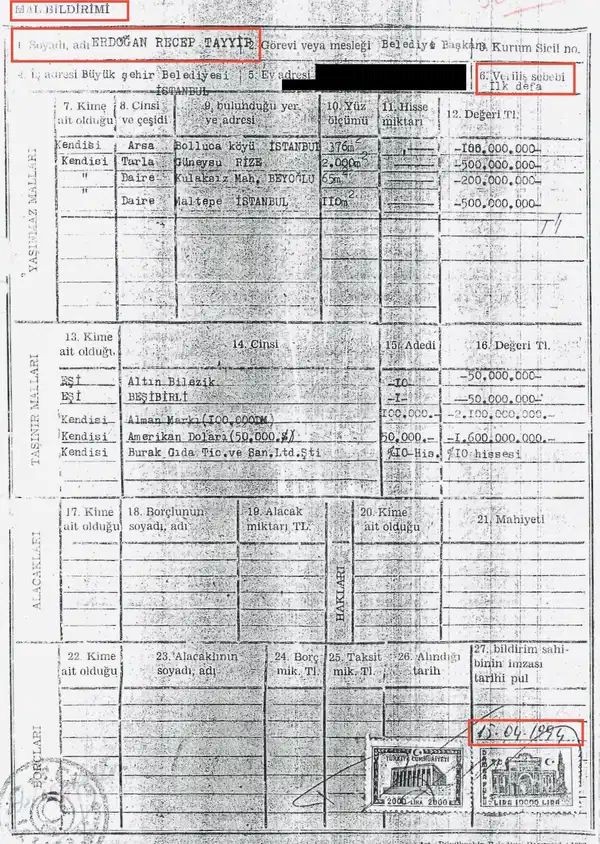 MAL BİLDİRİMİ
1. Soyadı, adı ERDOĞAN RECEP TAYYİP 2. Görevi veya mesleği Belediye Başkanı 3. Kurum Sicil no.
4. İş adresi Büyük şehir Belediyesi İSTANBUL 5. Ev adresi 6. Veriliş sebebi İlk defa
YAŞINMAZ MALLARI
7. Kime ait olduğu 8. Cinsi ve çeşidi 9. bulunduğu yer ve adresi 10. Yüz ölçümü 11. Hisse miktarı 12. Değeri Tl.
Kendisi Arsa Bolluca köyü İSTANBUL 376m² -100.000.000-
Kendisi Tarla Güneysu RİZE 2.000m² -500.000.000-
" Daire Kulaksız Mah, BEYOĞLU 65m² -200.000.000-
" Daire Maltepe İSTANBUL 110m² -500.000.000-
TAŞINIR MALLARI
13. Kime ait olduğu 14. Cinsi 15. Adedi 16. Değeri Tl.
EŞİ Altın Bilezik -10- -50.000.000-
EŞİ BEŞİBİRLİ -1- -50.000.000-
Kendisi Alman Markı(100.000DM) 100.000.- -2.100.000.000-
Kendisi Amerikan Doları(50.000.$) 50.000.- -1.600.000.000-
Kendisi Burak Gıda Tic.ve San.Ltd.Şti %10-His. %10 hissesi
ALACAKLARI
17. Kime ait olduğu 18. Borçlunun soyadı, adı 19. Alacak miktarı TL.
HAKLARI
20. Kime ait olduğu 21. Mahiyeti
BORÇLARI
22. Kime ait olduğu 23. Alacaklının soyadı, adı 24. Borç mik. Tl. 25. Taksit mik. Tl. 26. Alındığı tarih 27. bildirim sahibinin imzası tarihi pul
15.04.1994
TÜRKİYE CUMHURİYETİ
2000 LİRA 2000
DAMGA PULU
LİRA 10000 LİRA